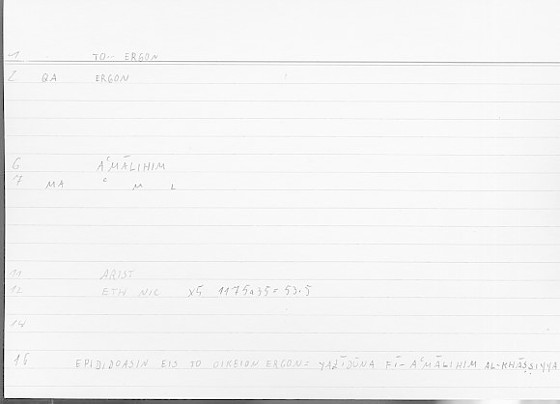 1 TO-- ERGON
2 QA ERGON
6 AʿMĀLIHIM
7 MA ʿ M L
11 ARIST
12 ETH NIC X5 1175a35 = 53.5
14
15 EPIDIDOASIN EIS TO OIKEION ERGON = YAZĪDŪNA FĪ- AʿMĀLIHIM AL-KHĀṢṢIYYA